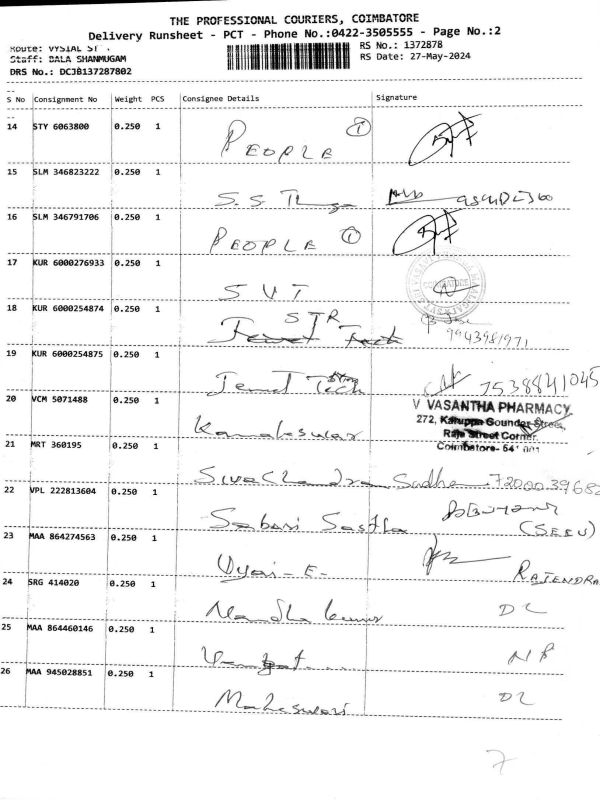 THE PROFESSIONAL COURIERS, COIMBATORE
Delivery Runsheet - PCT - Phone No.:0422-3505555 - Page No.:2
Route: VYSIAL ST
RS No.: 1372878
Staff: BALA SHANMUGAM
RS Date: 27-May-2024
DRS No.: DCJB137287802
S No Consignment No Weight PCS Consignee Details Signature
14 STY 6063800 0.250 1 PEOPLE 1
15 SLM 346823222 0.250 1 S.S.
16 SLM 346791706 0.250 1 PEOPLE 1
17 KUR 6000276933 0.250 1 SVT
COIMBATORE
18 KUR 6000254874 0.250 1 STR
9943981971
19 KUR 6000254875 0.250 1 Jewel Tech 7538841045
20 VCM 5071488 0.250 1 Kamaleswar
V VASANTHA PHARMACY
272, Karuppa Gounder Street,
Raja Street Corner
Coimbatore- 641 001
21 MRT 360195 0.250 1 Sivachandra Sudha 7200039682
22 VPL 222813604 0.250 1 Sabari Sastha
23 MAA 864274563 0.250 1 RAJENDRA
24 SRG 414020 0.250 1 Nandha kumar DL
25 MAA 864460146 0.250 1
26 MAA 945028851 0.250 1 Maheswari DL
7